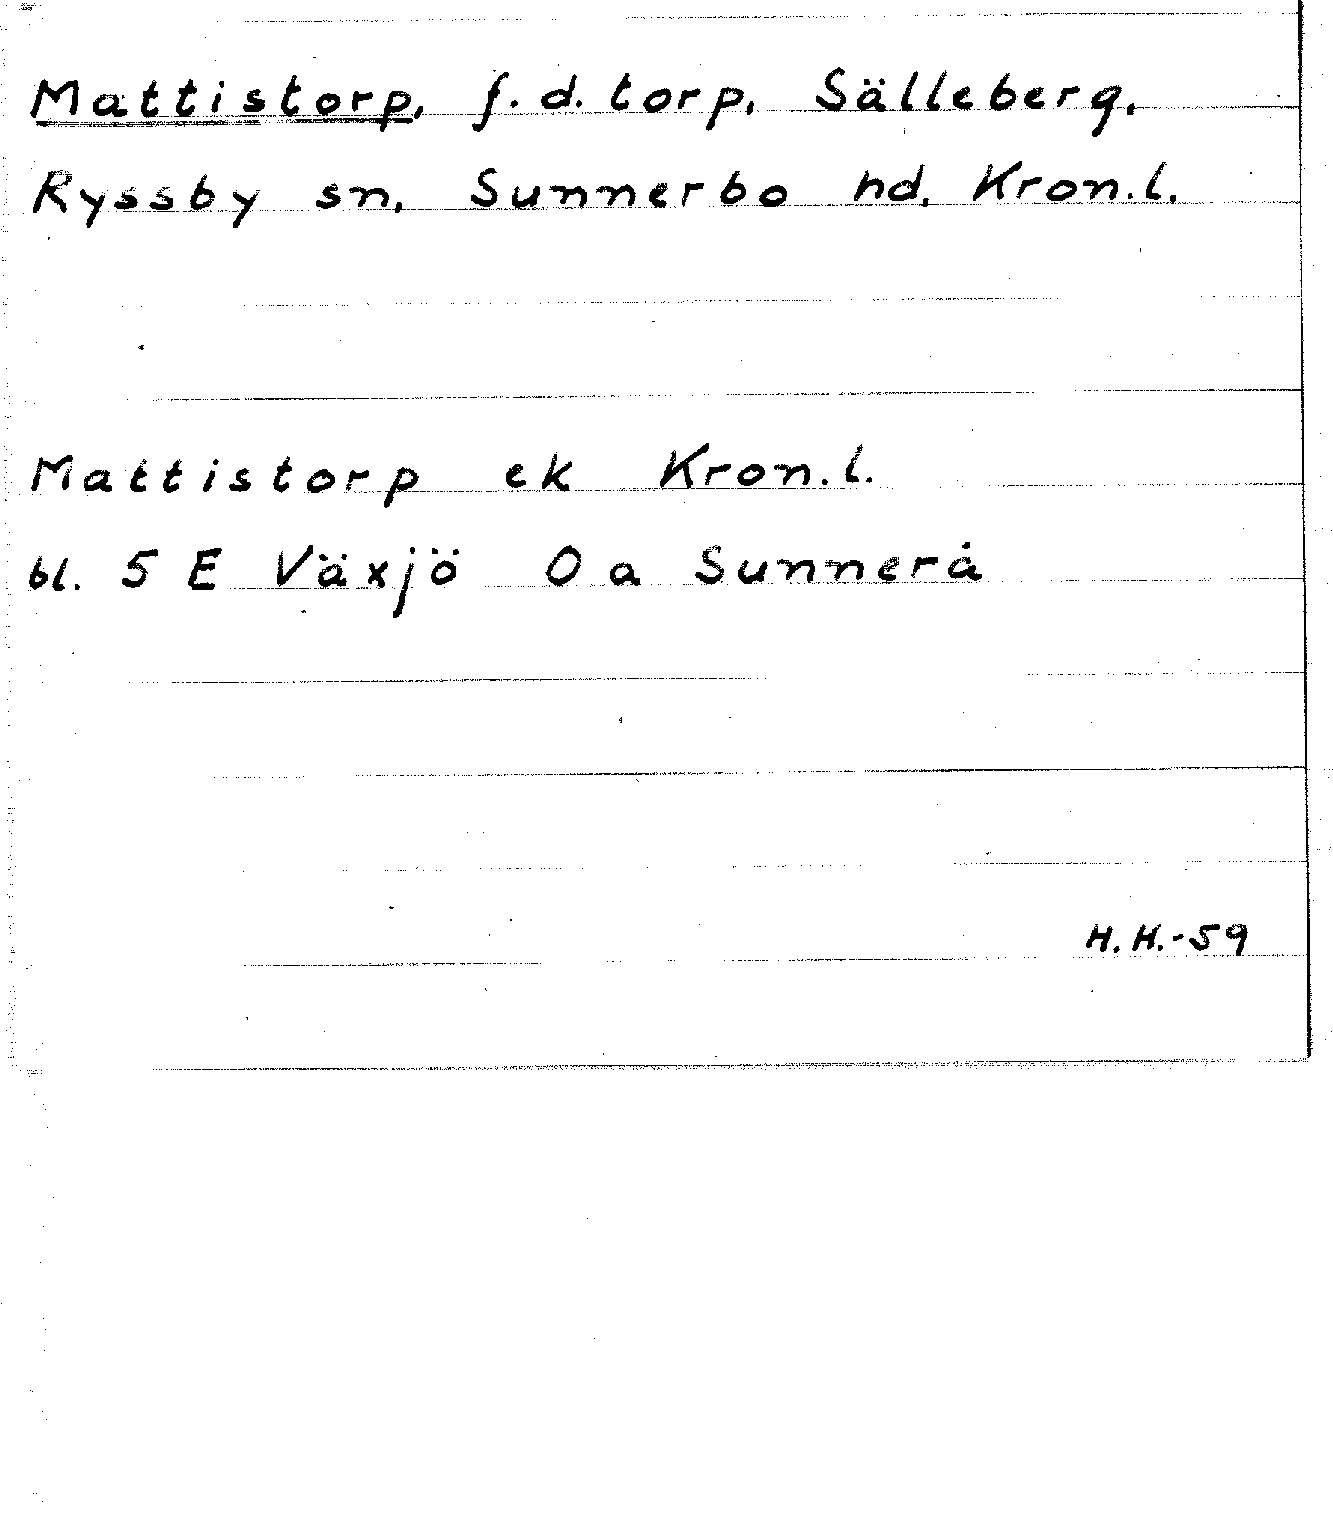 Mattistorp, f.d. torp, Sälleberg,
Ryssby sn, Sunnerbo hd, Kron.l.
Mattistorp ek Kron.l.
bl. 5 E Växjö 0 a Sunnerå
H.H.-59